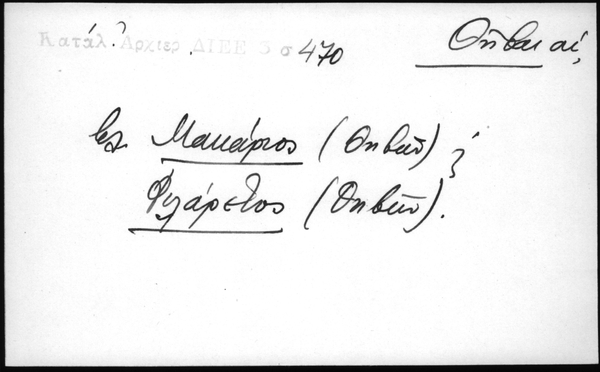 Κατάλ. Αρχιερ. ΔΙΕΕ 3 σ 470
Θῆβαι αἱ,
βλ. Μακάριος (Θηβῶν) ;
Φιλάρετος (Θηβῶν).